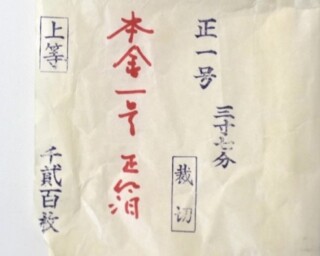 正一号
三寸七分
裁切
本金一号正箔
上等
千貳百枚